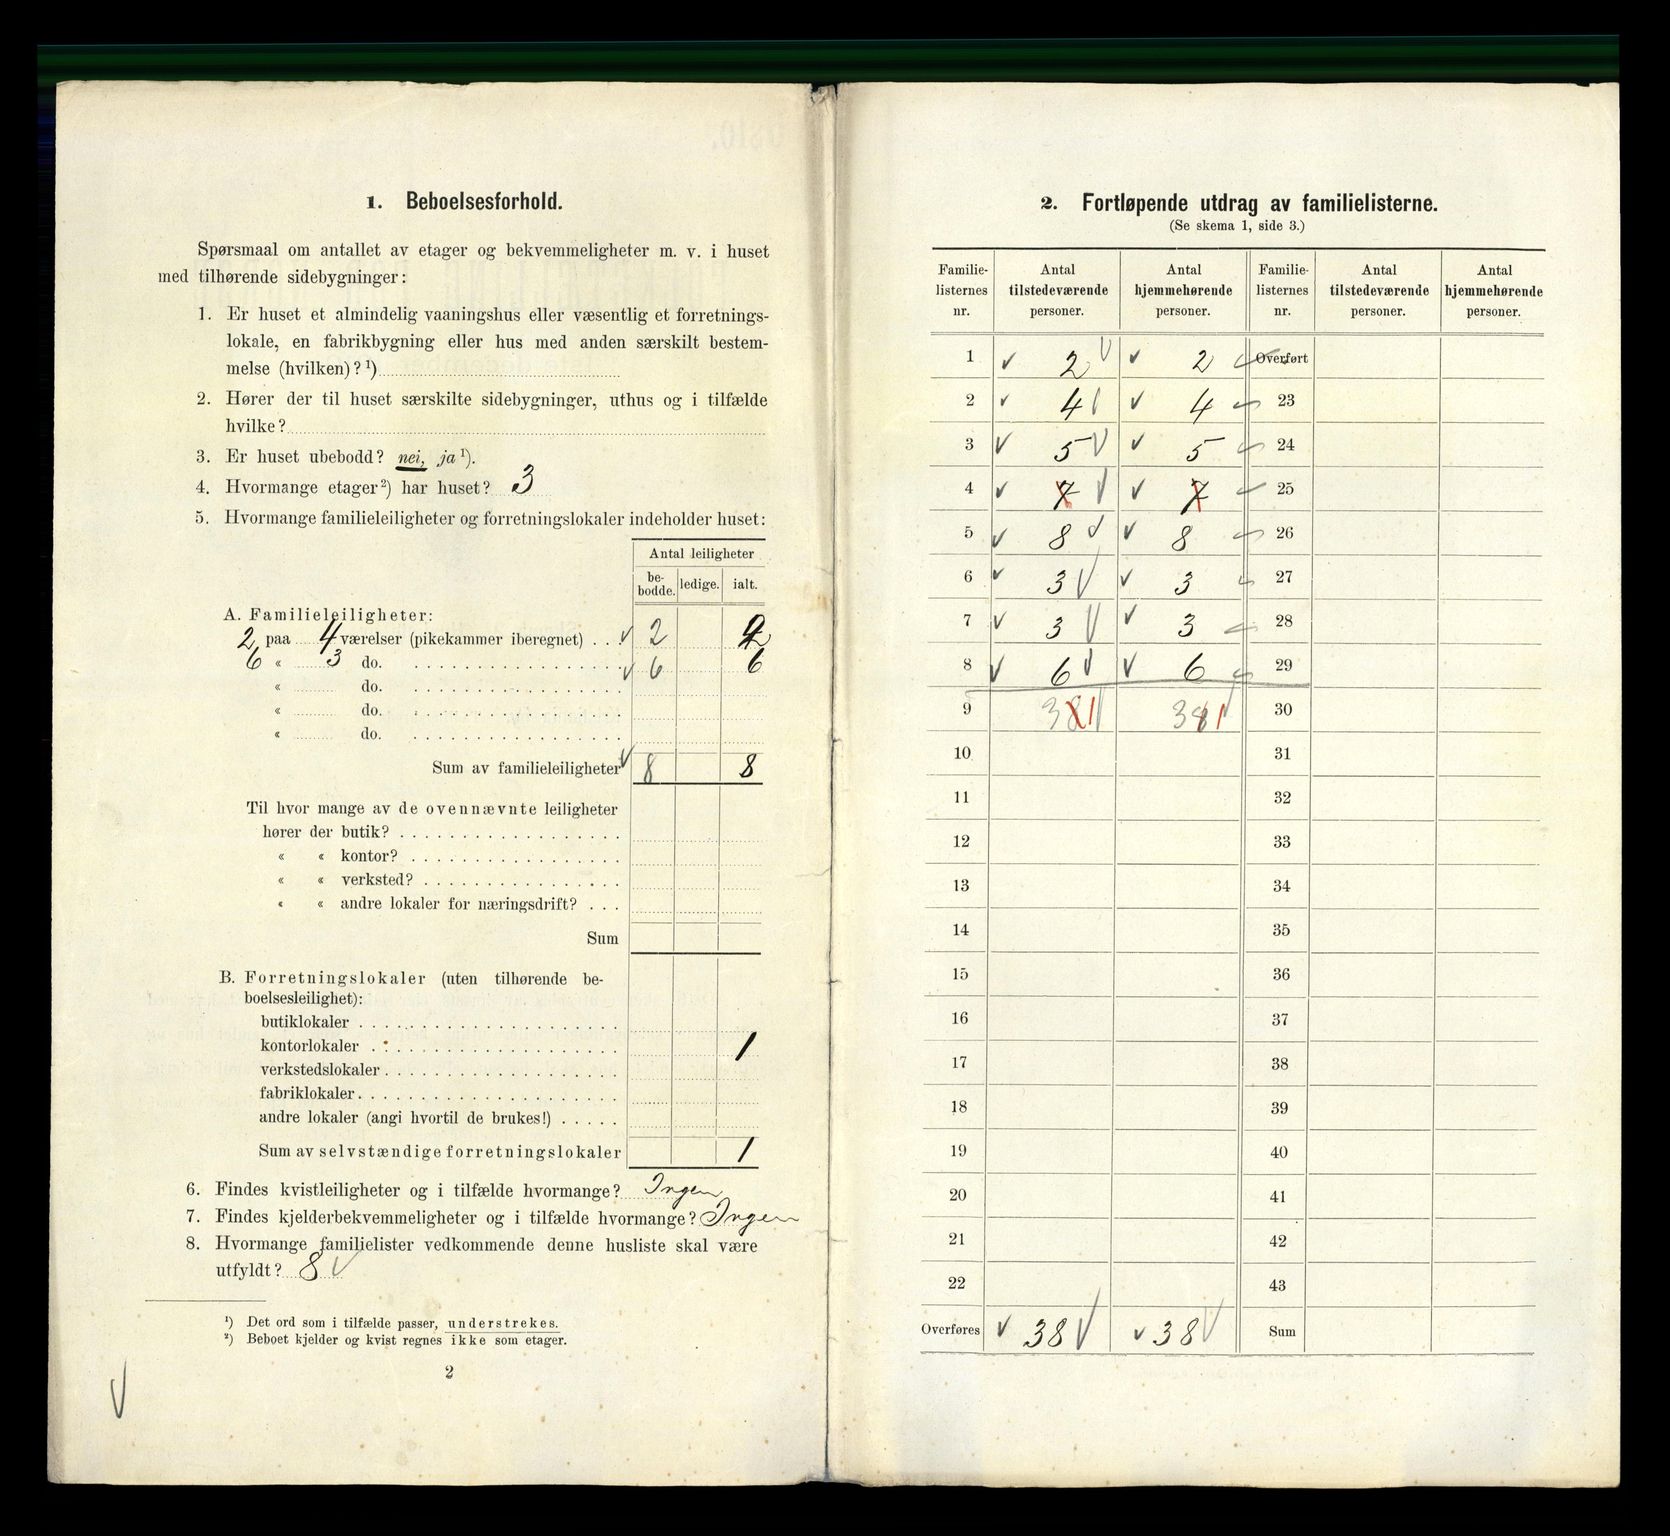 1. Beboelsesforhold.
Spørsmaal om antallet av etager og bekvemmeligheter m. v. i huset
med tilhørende sidebygninger:
1. Er huset et almindelig vaaningshus eller væsentlig et forretnings-
lokale, en fabrikbygning eller hus med anden særskilt bestem-
melse (hvilken)? ¹)
2. Hører der til huset særskilte sidebygninger, uthus og i tilfælde
hvilke?
3. Er huset ubebodd? nei, ja ¹).
4. Hvormange etager ²) har huset? 3
5. Hvormange familieleiligheter og forretningslokaler indeholder huset:
Antal leiligheter
be-
bodde. ledige. ialt.
A. Familieleiligheter:
2 paa 4 værelser (pikekammer iberegnet) . . √ 2 2
6 « 3 do. √ 6 6
« do.
« do.
« do.
Sum av familieleiligheter √ 8 8
Til hvor mange av de ovennævnte leiligheter
hører der butik?
« « kontor?
« « verksted?
« « andre lokaler for næringsdrift? . . .
Sum
B. Forretningslokaler (uten tilhørende be-
boelsesleilighet):
butiklokaler
kontorlokaler 1
verkstedslokaler
fabriklokaler
andre lokaler (angi hvortil de brukes!)
Sum av selvstændige forretningslokaler 1
6. Findes kvistleiligheter og i tilfælde hvormange? Ingen
7. Findes kjelderbekvemmeligheter og i tilfælde hvormange? Ingen
8. Hvormange familielister vedkommende denne husliste skal være
utfyldt? 8 √
¹) Det ord som i tilfælde passer, understrekes.
²) Beboet kjelder og kvist regnes ikke som etager.
2
√
2. Fortløpende utdrag av familielisterne.
(Se skema 1, side 3.)
Familie- Antal Antal Familie- Antal Antal
listernes tilstedeværende hjemmehørende listernes tilstedeværende hjemmehørende
nr. personer. personer. nr. personer. personer.
1 √ 2 √ √ 2 Overført
2 √ 4 √ √ 4 23
3 √ 5 √ √ 5 24
4 √ 7 √ √ 7 25
5 √ 8 √ √ 8 26
6 √ 3 √ √ 3 27
7 √ 3 √ √ 3 28
8 √ 6 √ √ 6 29
9 381 √ 381 √ 30
10 31
11 32
12 33
13 34
14 35
15 36
16 37
17 38
18 39
19 40
20 41
21 42
22 43
Overføres √ 38 √ √ 38 √ Sum